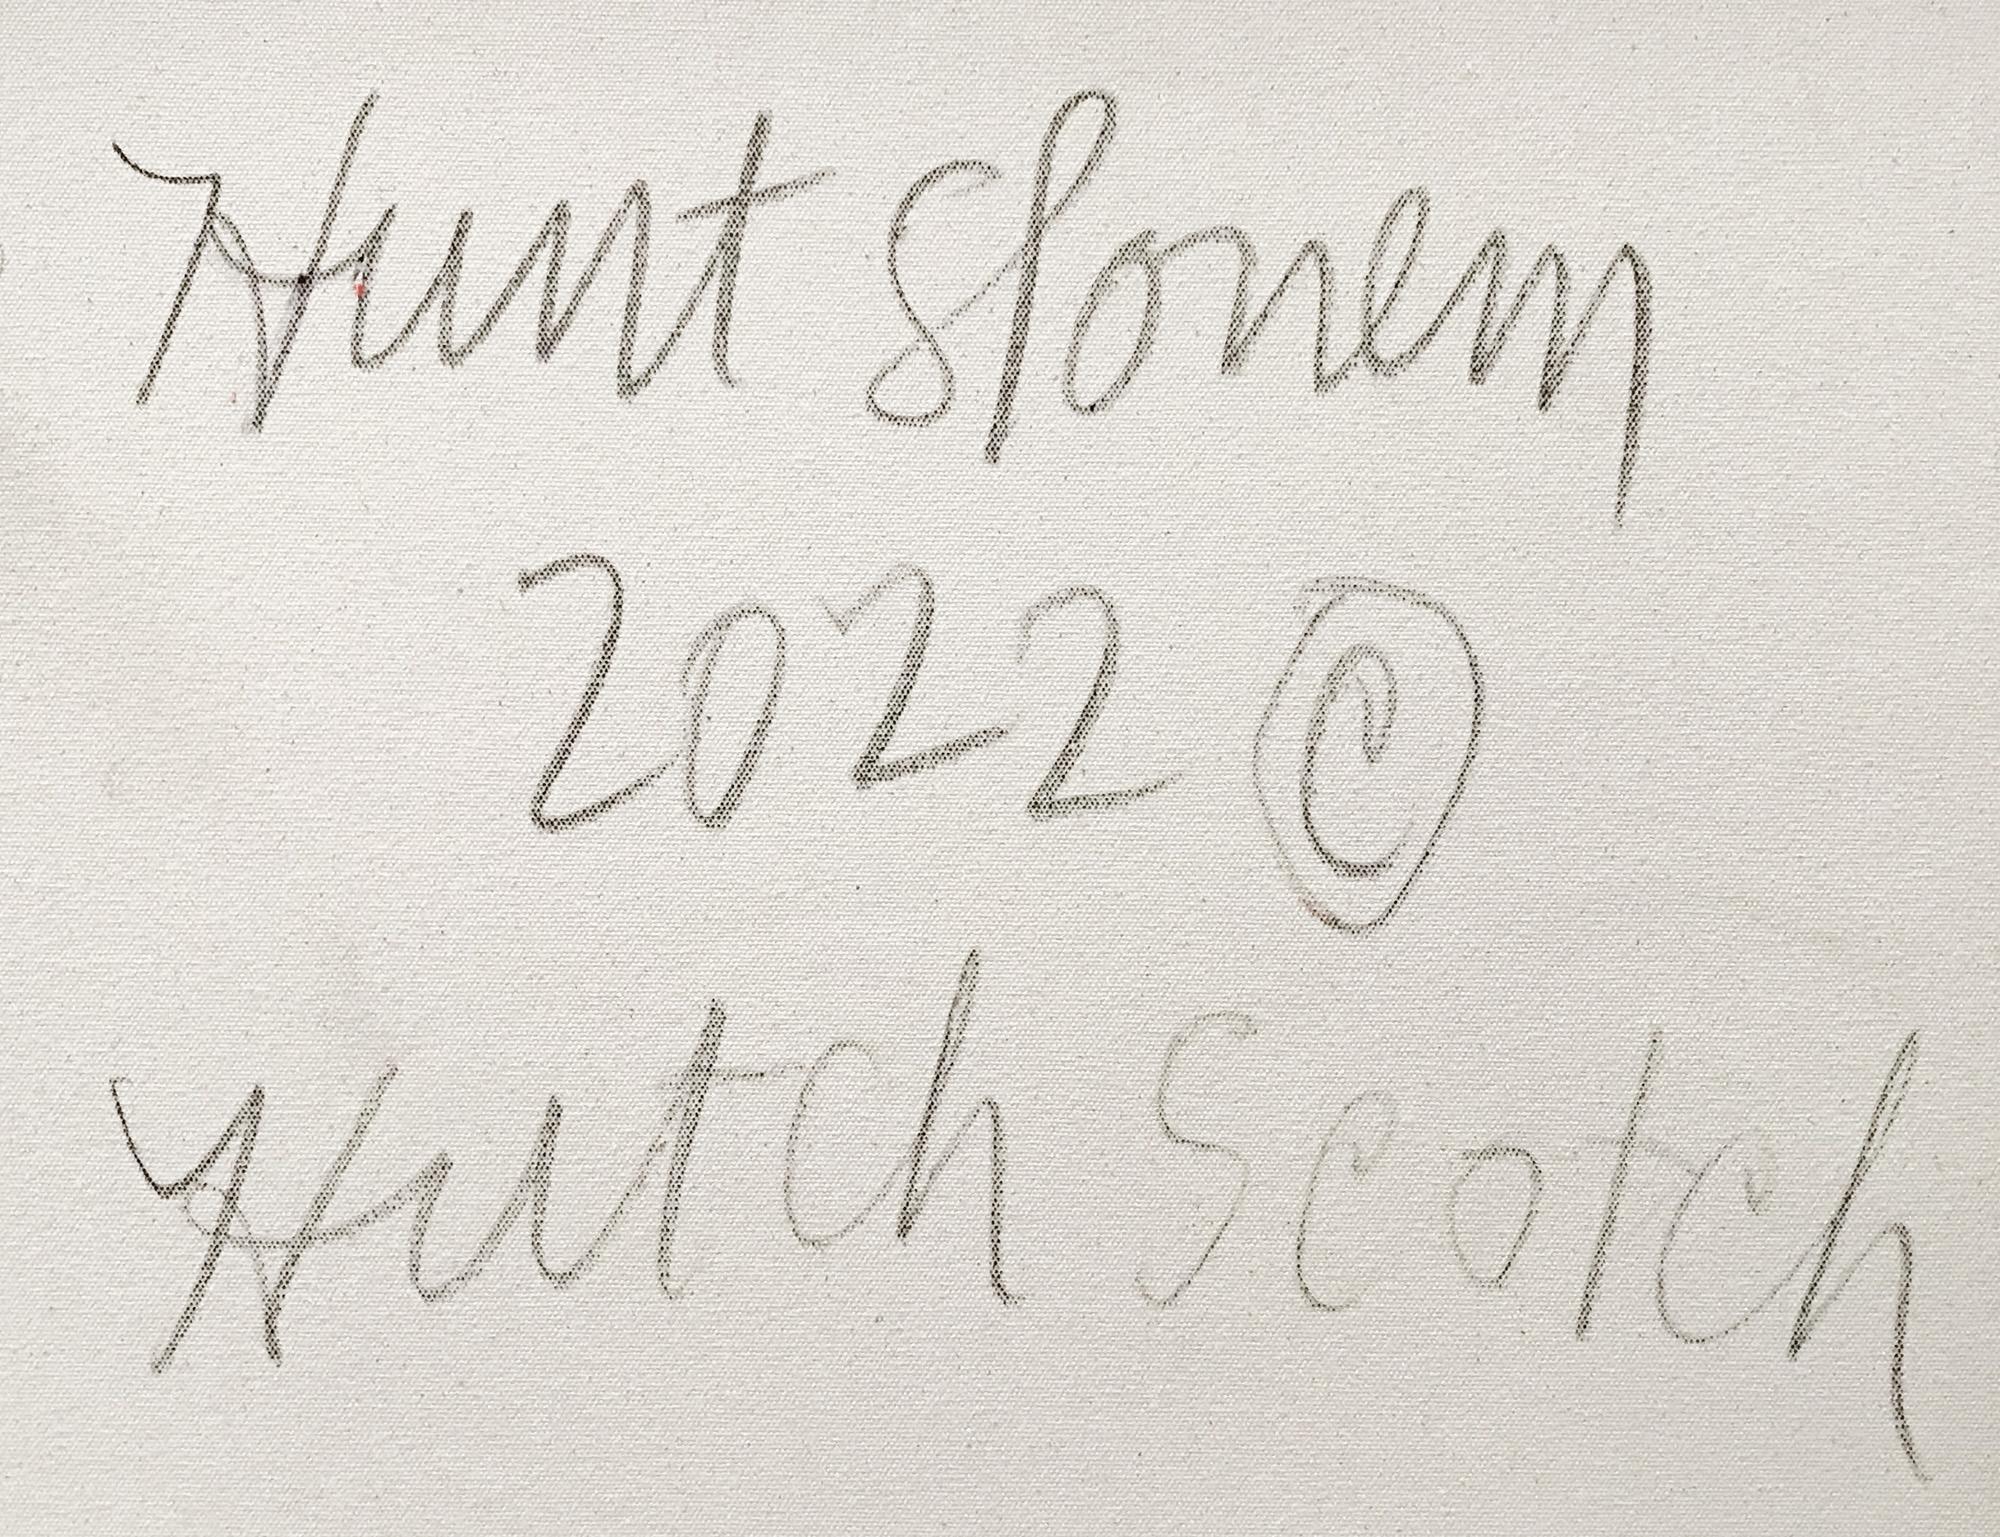 Hunt Slonem
2022 ©
Hutch Scotch